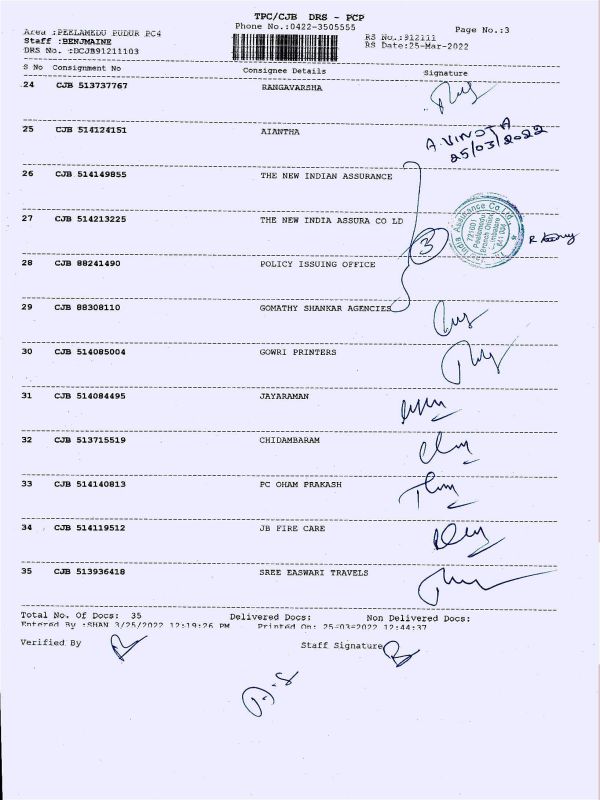 TPC/CJB DRS - PCP
Phone No.:0422-3505555
Page No.:3
Area :PEELAMEDU PUDUR PC4
Staff :BENJMAINE
DRS No. :DCJB91211103
RS No.:912111
RS Date:25-Mar-2022
S No Consignment No Consignee Details Signature
24 CJB 513737767 RANGAVARSHA
25 CJB 514124151 AIANTHA A.VINOTA 25/03/2022
26 CJB 514149855 THE NEW INDIAN ASSURANCE
27 CJB 514213225 THE NEW INDIA ASSURA CO LD 3
28 CJB 88241490 POLICY ISSUING OFFICE
29 CJB 88308110 GOMATHY SHANKAR AGENCIES
30 CJB 514085004 GOWRI PRINTERS
31 CJB 514084495 JAYARAMAN
32 CJB 513715519 CHIDAMBARAM
33 CJB 514140813 PC OHAM PRAKASH
34 CJB 514119512 JB FIRE CARE
35 CJB 513936418 SREE EASWARI TRAVELS
Total No. Of Docs: 35 Delivered Docs: Non Delivered Docs:
Entered By :SHAN 3/25/2022 12:19:26 PM Printed On: 25-03-2022 12:44:37
Verified By Staff Signature